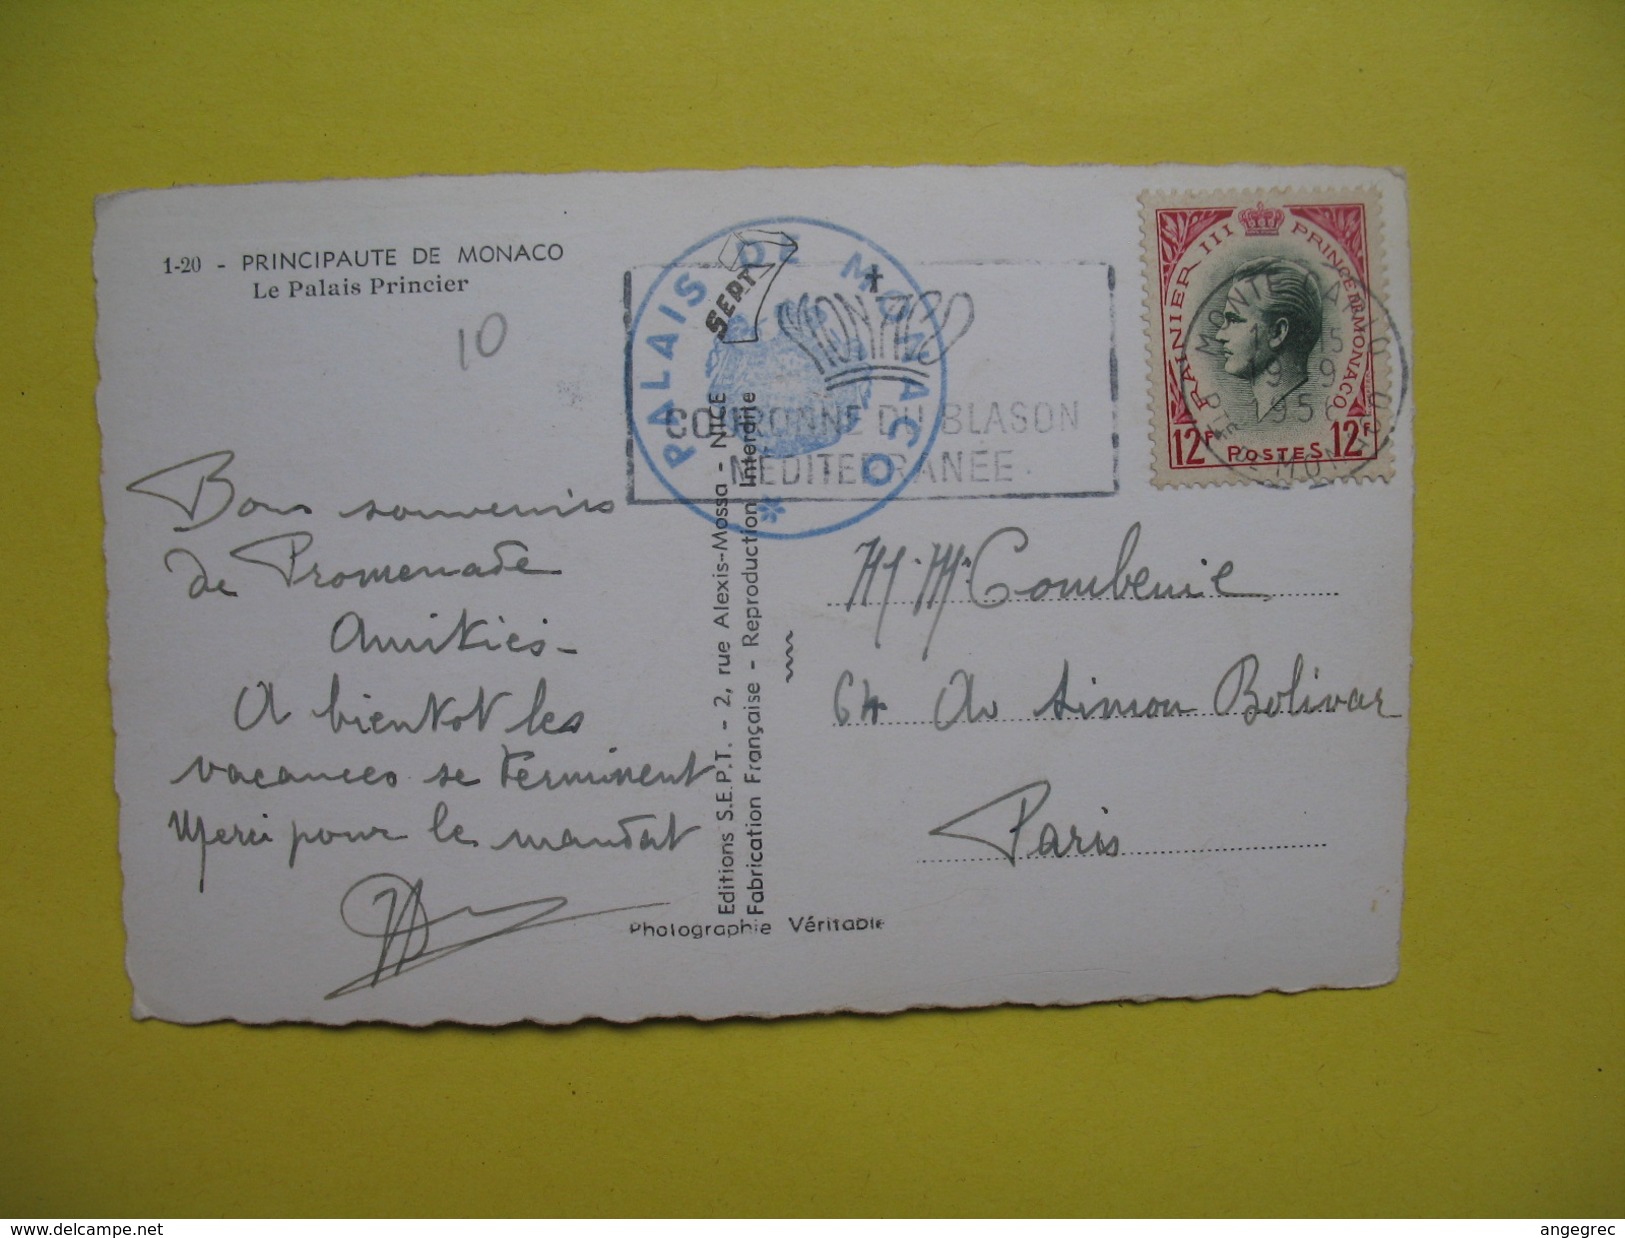 1-20 - PRINCIPAUTE DE MONACO
Le Palais Princier
10
Bons souvenirs
de Promenade
Amitiés -
A bientot les
vacances se terminent
Merci pour le mandat
Editions S.E.P.T. - 2, rue Alexis-Mossa - NICE
Fabrication Française - Reproduction Interdite
Photographie Véritable
SEPT
PALAIS DE MONACO
MONACO
COURONNE DU BLASON
MÉDITERRANÉE
RAINIER III PRINCE DE MONACO
12F POSTES 12F
MONTE-CARLO
19 - 9
1956
PTE DE MONACO
M. Me Combenie
64 Av Simon Bolivar
Paris
www.delcampe.net
angegrec